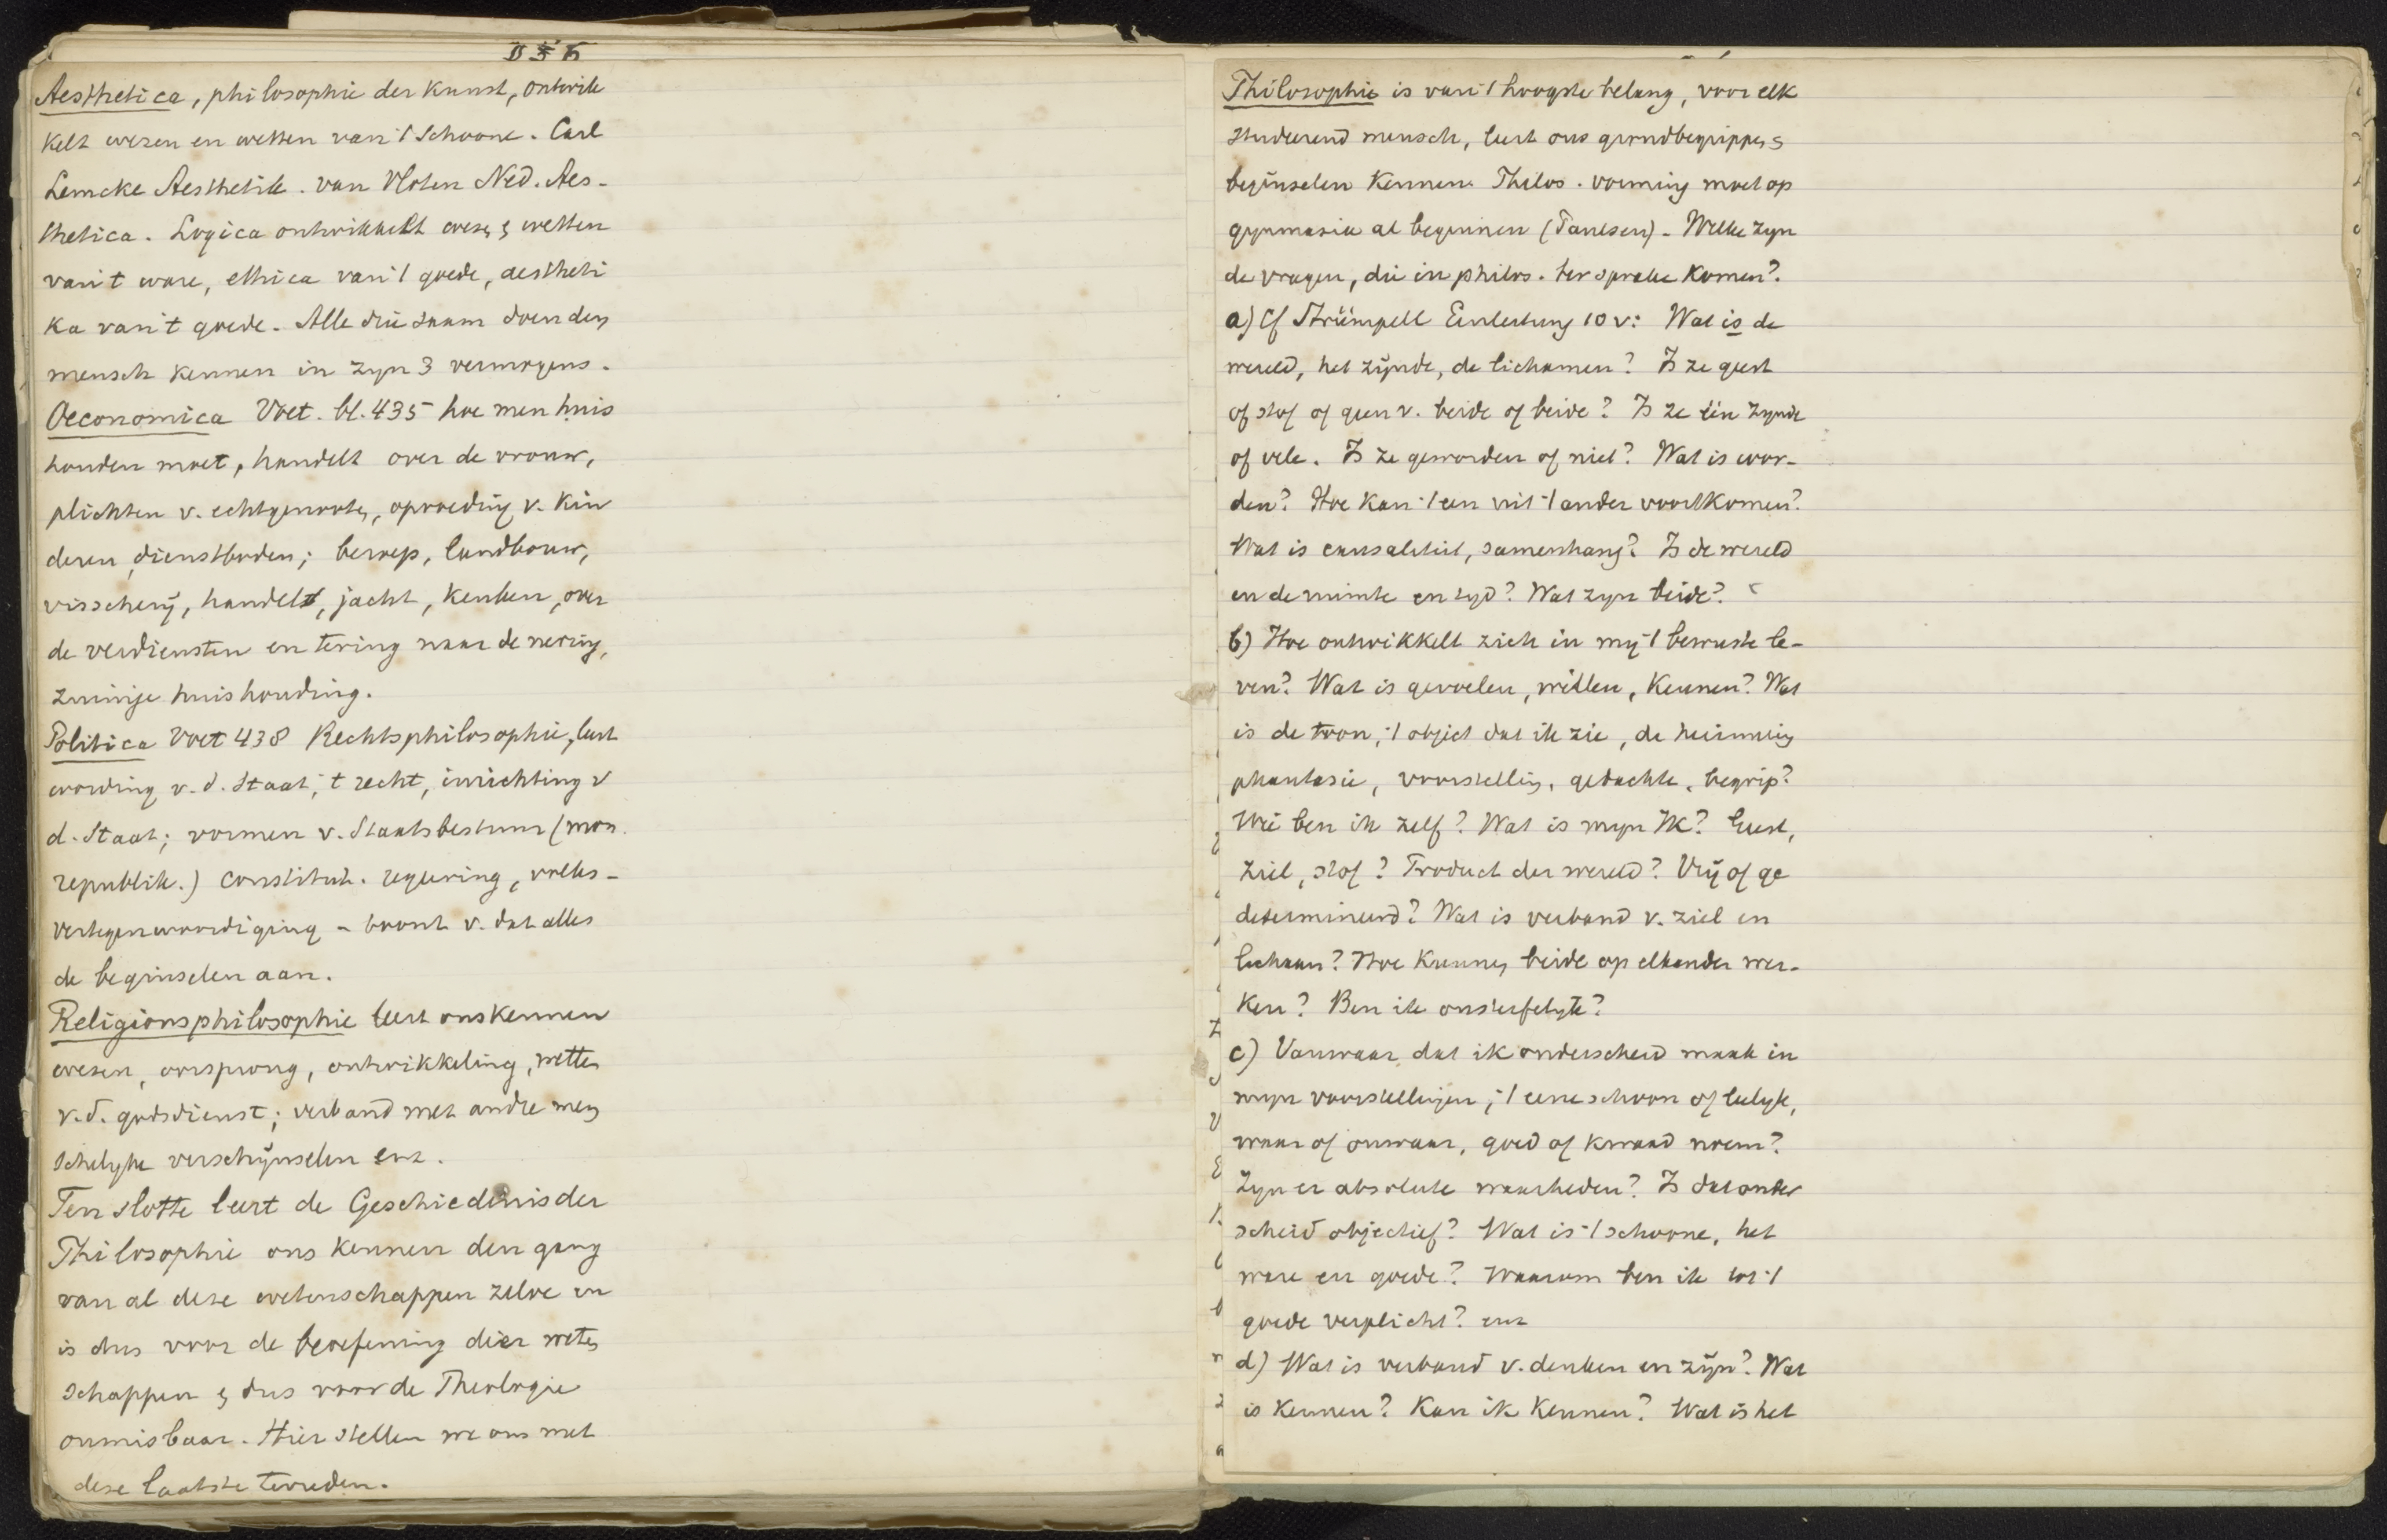 Aesthetica, philosophie der Kunst, ontwik
kelt wezen en wetten van 't Schoone. Carl
Lemcke Aesthetik. van Vloten Ned. Aes-
thetica. Logica ontwikkelt wezen & wetten
van 't ware, ethica van 't goede, aestheti
ka van 't goede. Alle drie saam doen den
mensch kennen in zyn 3 vermogens.
Oeconomica Voet. bl. 435 hoe men huis
houden moet, handelt over de vrouw,
plichten v. echtgenooten, opvoeding v. kin
deren, dienstboden; beroep, landbouw,
visscherij, handel, jacht, keuken, over
de verdiensten en tering naar de nering,
zuinige huishouding.
Politica Voet 438 Rechtsphilosophie, leert
wording v. d. Staat, 't recht, inrichting v
d. Staat; vormen v. Staatsbestuur (mon.
republik.) constitut. regeering, volks-
vertegenwoordiging - toont v. dat alles
de beginselen aan.
Religionsphilosophie leert ons kennen
wezen, oorsprong, ontwikkeling, wetten
v.d. godsdienst; verband met andre men
schelyke verschijnselen enz.
Ten slotte leert de Geschiedenis der
Philosophie ons kennen den gang
van al deze wetenschappen zelve en
is dus voor de beoefening dier weten
schappen & dus voor de Theologie
onmisbaar. Hier stellen we ons met
deze laatste tevreden.
Philosophie is van 't hoogste belang, voor elk
studeerend mensch, leert ons grondbegrippen &
beginselen kennen. Philos. vorming moet op
gymnasia al beginnen (Paulsen) - Welke zyn
de vragen, die in philos. ter sprake komen?
a) Cf Strümpell Einleitung 10 v: Wat is de
wereld, het zijnde, de lichamen? Is ze geest
of stof of geen v. beide of beide? Is ze één zynde
of vele. Is ze geworden of niet? Wat is wor-
den? Hoe kan 't een uit 't ander voortkomen?
Wat is causaliteit, samenhang? Is de wereld
en de ruimte en tyd? Wat zyn beide?
b) Hoe ontwikkelt zich in mij 't bewuste le-
ven? Wat is gevoelen, willen, kennen? Wat
is de toon, 't object dat ik zie, de herinnering
phantasie, voorstelling, gedachte, begrip?
Wie ben ik zelf? Wat is myn Ik? Geest,
Ziel, stof? Product der wereld? Vrij of ge
determineerd? Wat is verband v. ziel en
lichaam? Hoe kunnen beide op elkander wer-
ken? Ben ik onsterfelyk?
c) Vanwaar dat ik onderscheid maak in
myn voorstellingen, 't eene schoon of leelyk,
waar of onwaar, goed of kwaad noem?
Zyn er absolute waarheden? Is dat onder
scheid objectief? Wat is 't schoone, het
ware en goede? Waarom ben ik tot 't
goede verplicht? enz
d) Wat is verband v. denken en zijn? Wat
is kennen? Kan ik kennen? Wat is het